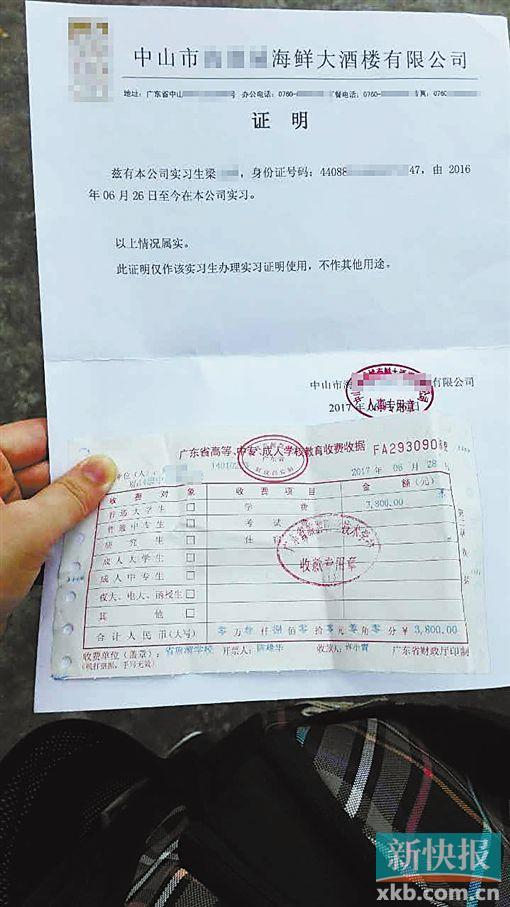 中山市 海鲜大酒楼有限公司
地址：广东省中山 号 办公电话：0760- 餐电话：0760- 传真：0760
证 明
兹有本公司实习生梁 ，身份证号码：44088 47，由 2016
年 06 月 26 日至今在本公司实习。
以上情况属实。
此证明仅作该实习生办理实习证明使用，不作其他用途。
中山市海 有限公司
2017 年 06
人事专用章
广东省高等、中专、成人学校教育收费收据 FA293090
2017 年 06 月 28
收 费 对 象 收 费 项 目 金 额(元)
普通大学生 □ 学 费 3,800.00
普通中专生 □ 考 试
研 究 生 □ 住
成人大学生 □
成人中专生 □
夜大、电大、函授生 □
其 他 □
收款专用章
合计人民币(大写) 零 万 仟 捌 佰 零 拾 零 元 零 角 零 分 ¥ 3,800.00
收费单位(盖章)： 省旅游学校 开票人： 收款人： 广东省财政厅印制
新快报
xkb.com.cn